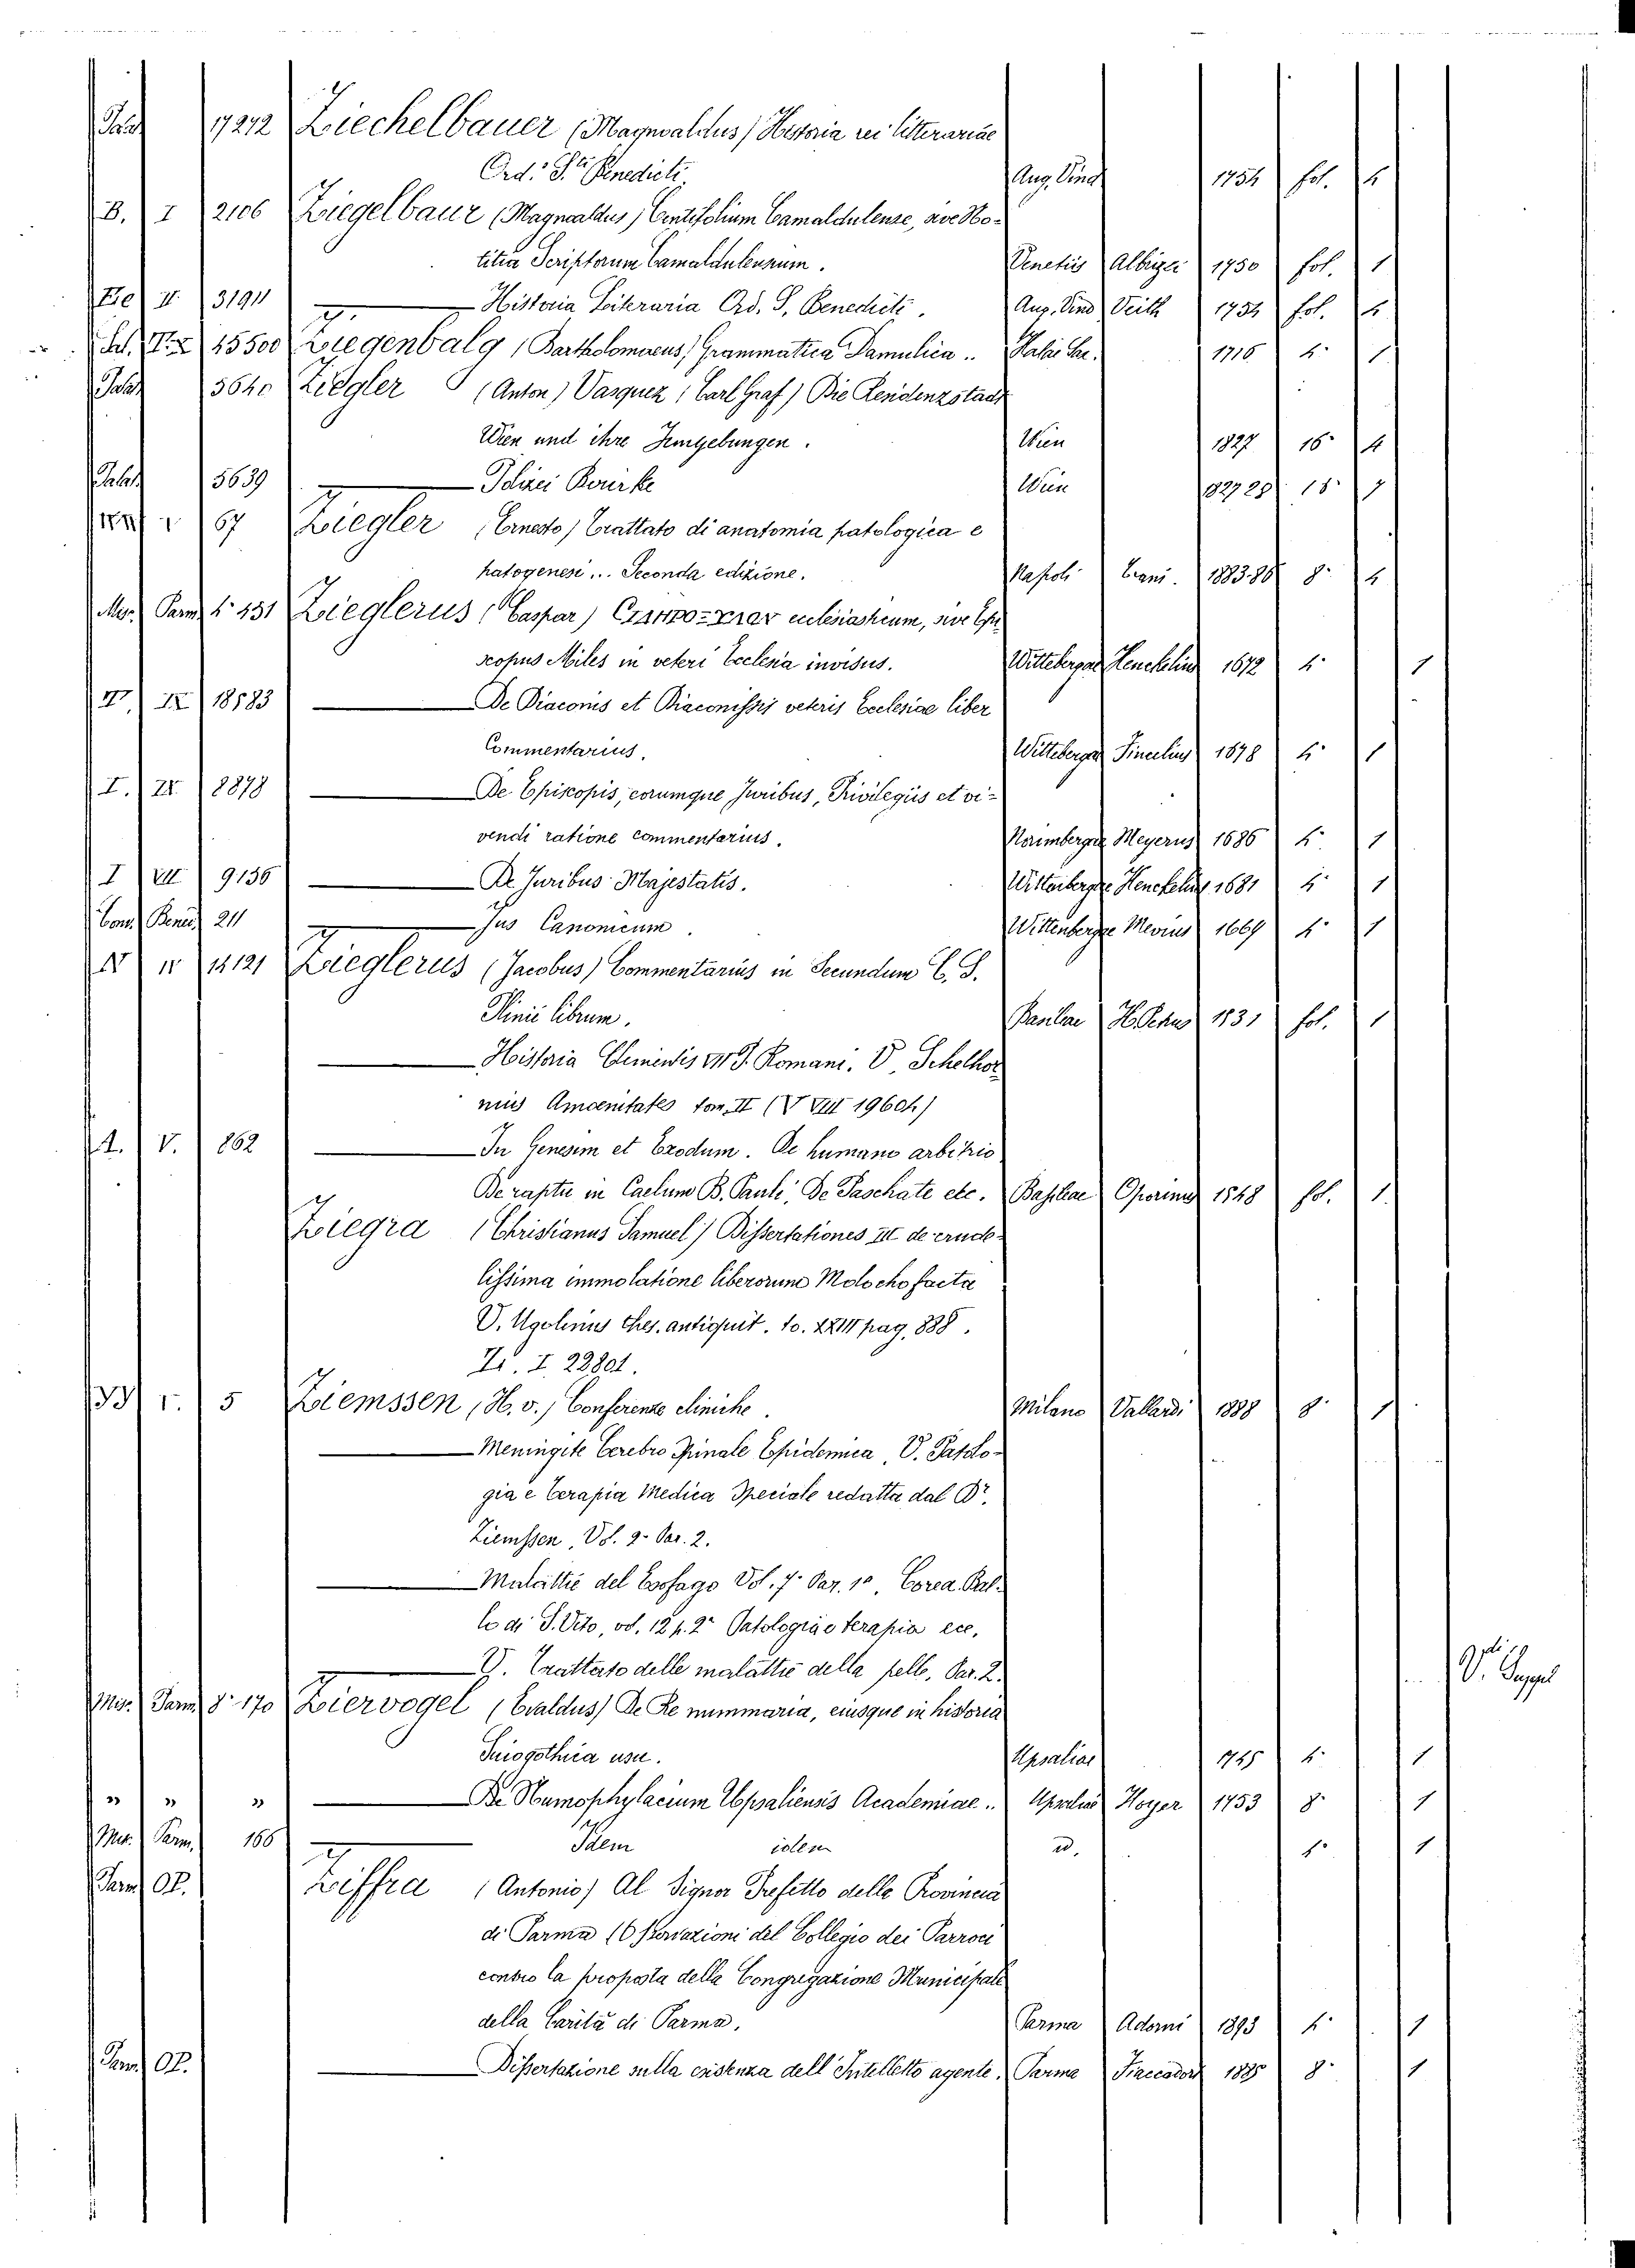 17212 Ziechelbauer (Magnoaldus) Historia rei litterariae
Ord. S.ti Benedicti. Aug. Vind 1754 fol. 4
B. I 2106 Ziegelbaur (Magnoaldus) Centifolium Camaldulense, sive No-
titia Scriptorum Camaldulensium. Venetiis Albrizzi 1750 fol. 1
31911 — Historia Leiteraria Ord. S. Benedicti. Aug. Vind Veith 1754 fol. 4
15500 Ziegenbalg (Bartholomaeus) Grammatica Damulica .. 1716 4° 1
5640 Ziegler (Anton) Vasquez (Carl Graf) Die Residenzstadt
Wien und ihre Umgebungen. Wien 1827 16° 4
5639 — Polizei Bezirke Wien 1827 28 18° 7
67 Ziegler (Ernesto) Trattato di anatomia patologica e
patogenesi... Seconda edizione. Napoli 1883-86 8° 4
Misc. Parm. 4° 131 Zieglerus (Caspar) ecclesiasticum, sive Epi
scopus Miles in veteri Ecclesia invisus. Wittebergae Henckelius 1672 4° 1
18583 — De Diaconis et Diaconissis veteris Ecclesiae liber
Commentarius. Wittebergae Fincelius 1678 4° 1
I. IV 8878 — De Episcopis, eorumque Juribus, Privilegiis et vi-
vendi ratione commentarius. Norimbergae Meyerus 1686 4° 1
I VII 9136 — De Juribus Majestatis. Wittenbergae Henckelius 1681 4° 1
211 — Jus Canonicum. Wittenbergae Mevius 1669 4° 1
14121 Zieglerus (Jacobus) Commentarius in Secundum C. S.
Plinii librum. Basileae H. Petrus 1531 fol. 1
— Historia Clementis VII P. Romani. V. Schelhor
nius Amoenitates tom. II (V VIII 19604)
A. V. 862 — In Genesim et Exodum. De humano arbitrio
De raptu in Caelum B. Pauli; De Paschate etc. Basileae Oporinus 1548 fol. 1.
Ziegra (Christianus Samuel) Dissertationes III de crude-
lissima immolatione liberorum Molocho facta
V. Ugolinus Thes. antiquit. to. XXIII pag. 888.
I 22801.
5 Ziemssen (H. v.) Conferenze cliniche. Milano Vallardi 1888 8° 1
— Meningite Cerebro Spinale Epidemica, V. Patolo-
gia e Terapia Medica Speciale redatta dal Dr.
Ziemssen, Vol. 2° Par. 2.
— Malattie del Esofago Vol. 7° Par. 1a, Corea. Bal-
lo di S. Vito, vol. 12 p. 2a Patologia e terapia ecc.
V. Trattato delle malattie della pelle, Par. 2.
V. Suppl
Misc. Parm. 8° 170 Ziervogel (Evaldus) De Re nummaria, eiusque in historia
Suiogothica usu. Upsaliae 1745 4° 1
" " " — De Numophylacium Upsaliensis Academiae .. Upsaliae Hoyer 1753 8° 1
Misc. Parm. 166 — Idem idem id. 1
Parm. Op. Ziffra (Antonio) Al Signor Prefetto della Provincia
di Parma (Osservazioni del Collegio dei Parroci
contro la proposta della Congregazione Municipale
della Carità di Parma. Parma Adorni 1893 4° 1
Parm. Op. — Dissertazione sulla esistenza dell'Intelletto agente. Parma Fiaccadori 1885 8° 1